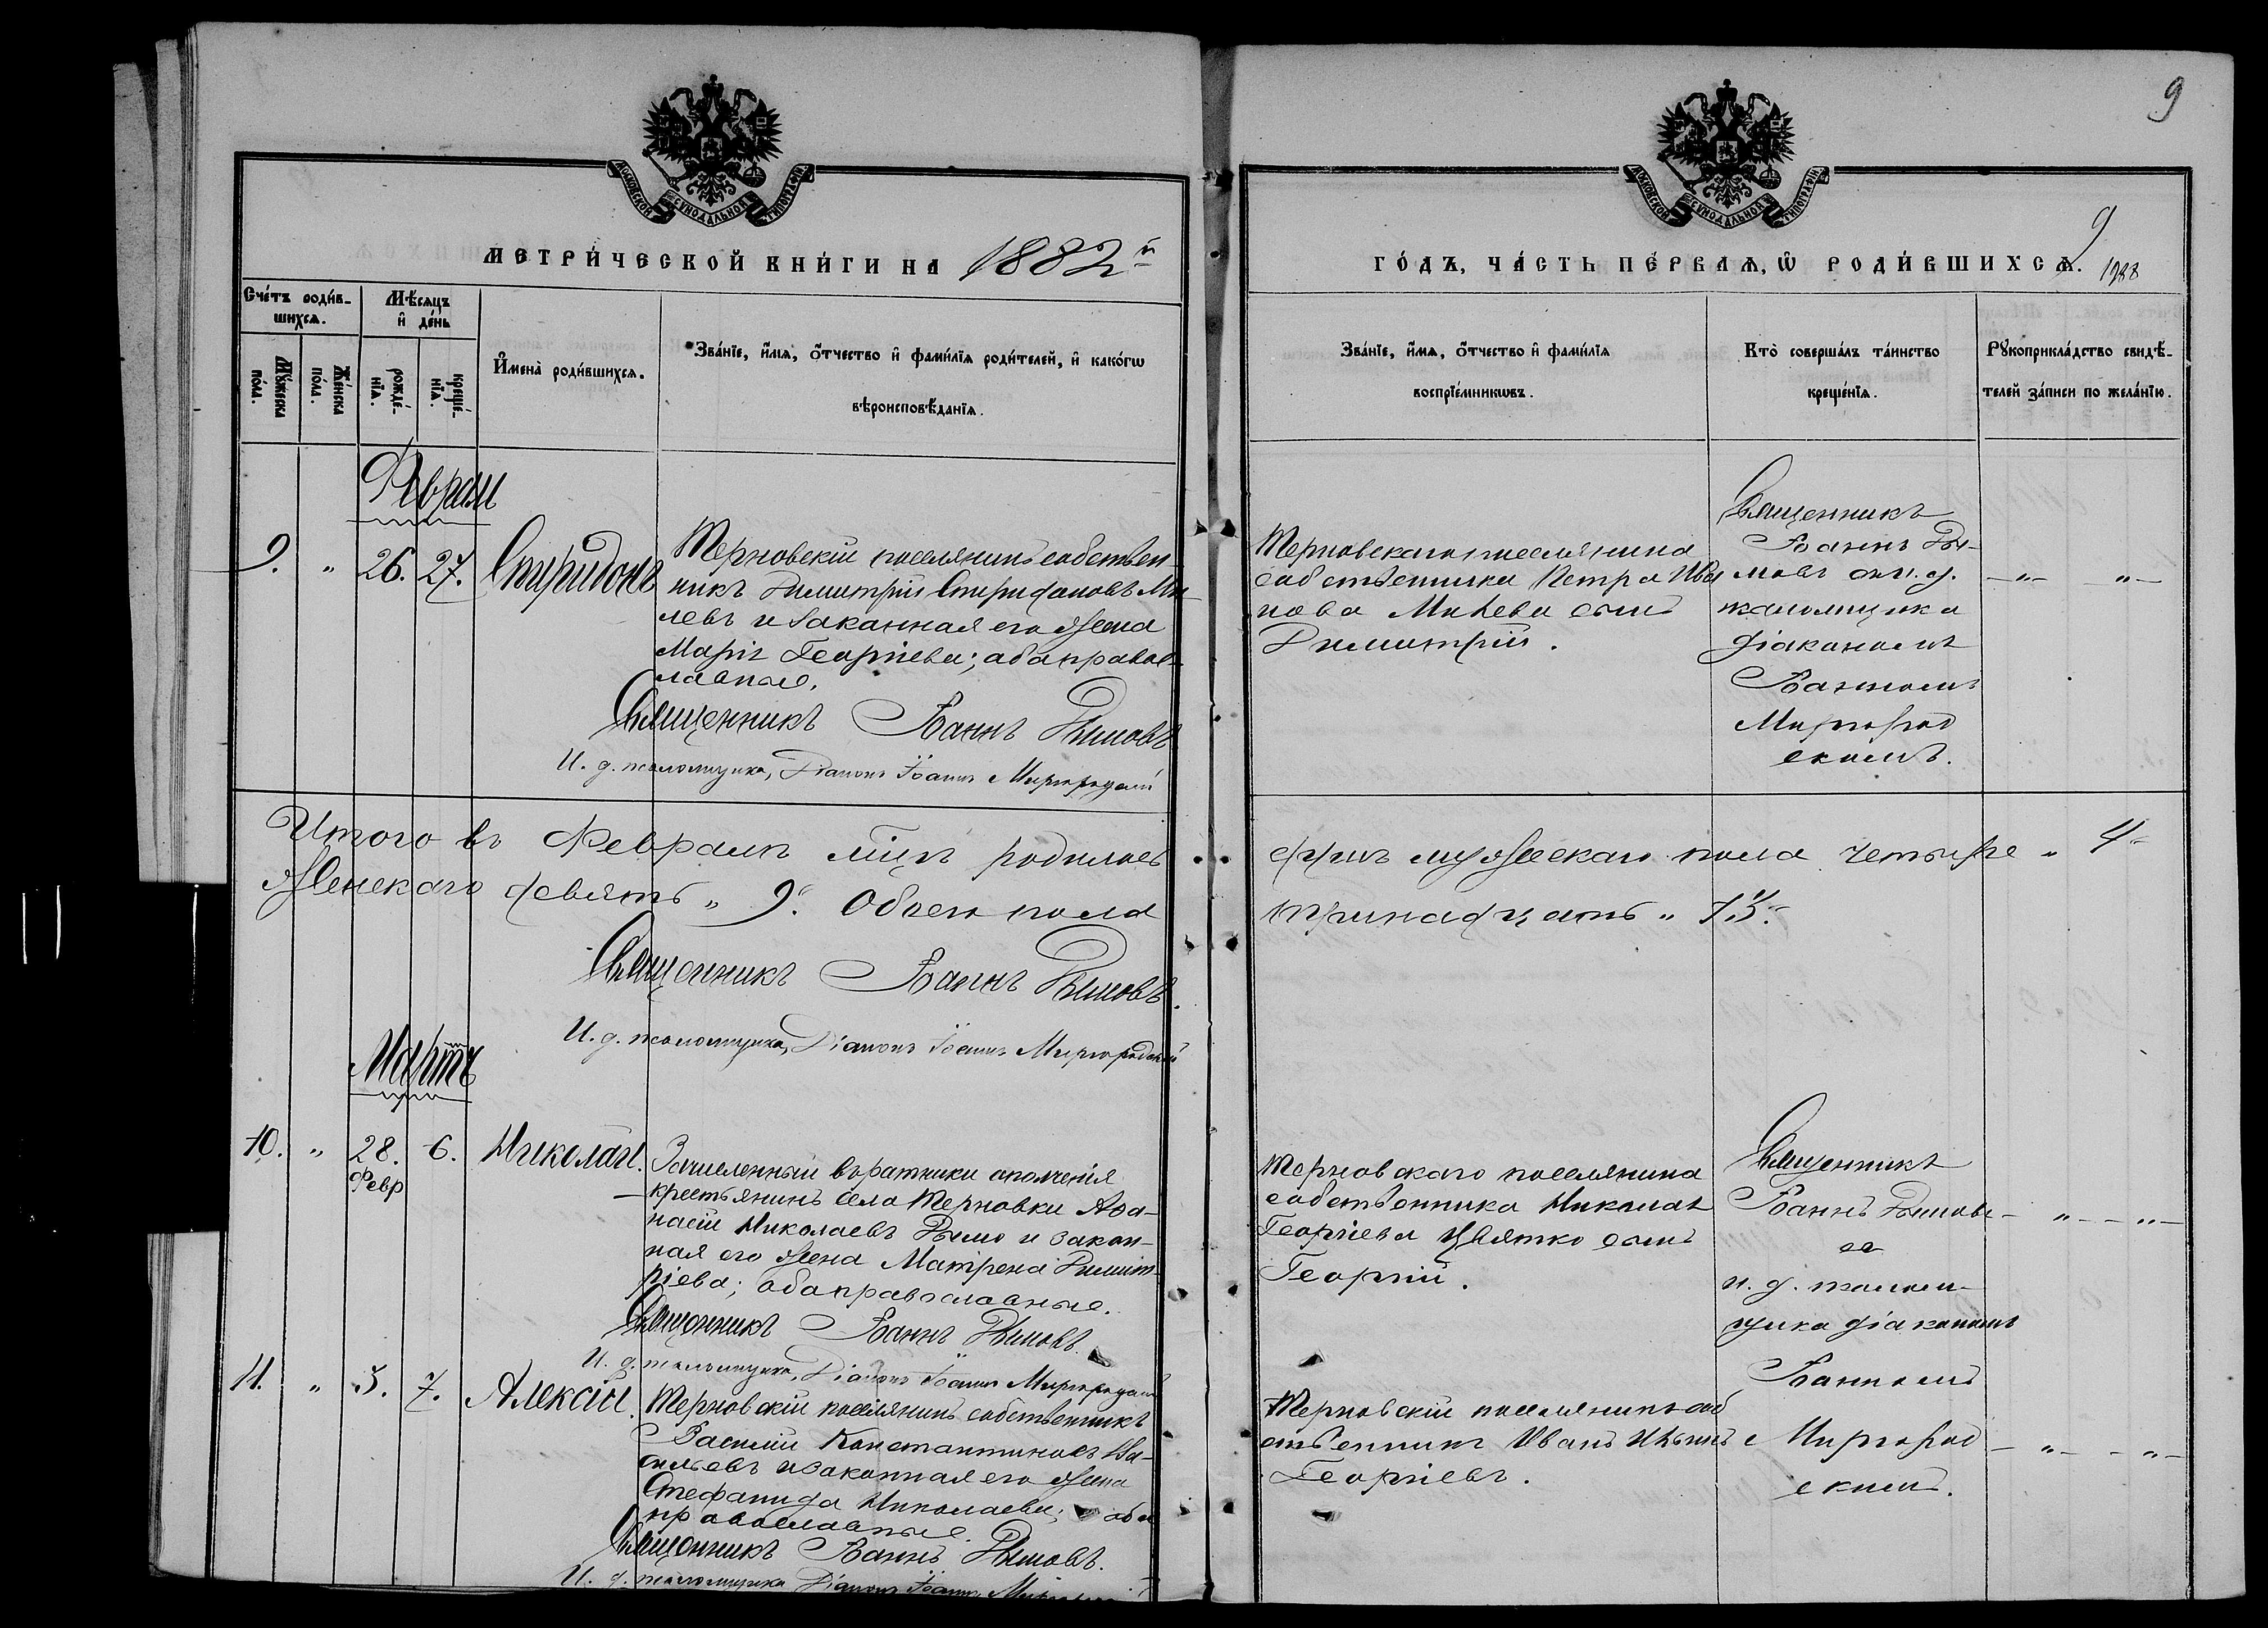 9
МОСКОВСКОЙ СѴНОДАЛЬНОЙ ТИПОГРАФІИ
МЕТРИ́ЧЕСКОЙ КНИ́ГИ НА 1882й
Сче́тъ роди́в-
шихсѧ.
Мѣ́сѧцъ
и҆ де́нь
Мꙋ́жеска
по́ла.
Же́нска
по́ла.
рожде́-
нїѧ.
креще́-
нїѧ.
И҆мена̀ роди́вшихсѧ.
Зва́нїе, и҆́мѧ, ѻ҆́тчество и҆ фами́лїѧ роди́телей, и҆ како́гѡ
вѣроисповѣ́данїѧ.
Февраль
9. " 26. 27. Спиридонъ
Терновскій поселянинъ собствен
никъ Димитрій Спиридоновъ Ми-
левъ и законная его жена
Марія Георгіева; оба правос-
лавные.
Священникъ Іоаннъ Дымовъ
И. д. псаломщика, Діаконъ Іоаннъ Миргородскій
Итого въ Февралѣ мцѣ родилось
Женскаго девять " 9. Обоего пола
Священникъ Іоаннъ Дымовъ.
И. д. псаломщика, Діаконъ Іоаннъ Миргородскій
Мартъ
10. " 28. 6. Николай.
Февр
Зачисленный въ ратники ополченія
крестьянинъ села Терновки Аѳа-
насій Николаевъ Дымо и закон-
ная его жена Матрена Димит-
ріева; оба православные.
Священникъ Іоаннъ Дымовъ.
И. д. псаломщика, Діаконъ Іоаннъ Миргородскій
11. " 5. 7. Алексій.
Терновскій поселянинъ собственникъ
Василій Константиновъ Ва-
сильевъ и законная его жена
Стефанида Николаева; оба
православные.
Священникъ Іоаннъ Дымовъ.
И. д. псаломщика Діаконъ Іоаннъ
МОСКОВСКОЙ СѴНОДАЛЬНОЙ ТИПОГРАФІИ
9
ГО́ДЪ, ЧА́СТЬ ПЕ́РВАѦ, Ѡ҆ РОДИ́ВШИХСѦ. 1988
Зва́нїе, и҆́мѧ, ѻ҆́тчество и҆ фами́лїѧ
воспрїе́мникѡвъ.
Кто̀ соверша́лъ та́инство
креще́нїѧ.
Рꙋкоприкла́дство свидѣ́-
телей за́писи по жела́нїю.
Терновскаго поселянина
собственника Петра Ива
нова Михева сынъ
Димитрій.
Священникъ
Іоаннъ Ды-
мовъ съ и. д.
псаломщика
діакономъ
Іоанномъ
Миргород
скимъ.
душъ мужескаго пола четыре " 4
тринадцать " 13.
Терновскаго поселянина
собственника Николая
Георгіева Цвятко сынъ
Георгій.
Священникъ
Іоаннъ Дымовъ
съ
и. д. псалом-
щика діакономъ
Іоанномъ
Миргород
скимъ.
Терновскій поселянинъ соб
ственникъ Иванъ Ильинъ
Георгіевъ.